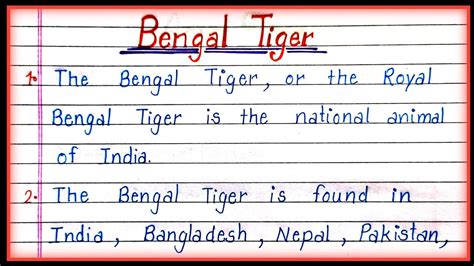 Bengal Tiger
1. The Bengal Tiger, or the Royal
Bengal Tiger is the national animal
of India.
2. The Bengal Tiger is found in
India, Bangladesh, Nepal, Pakistan,